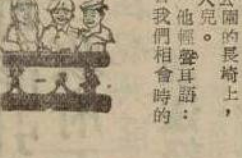 公園的長椅上，
人兒。
他輕聲耳語：
我們相會時的
人一人